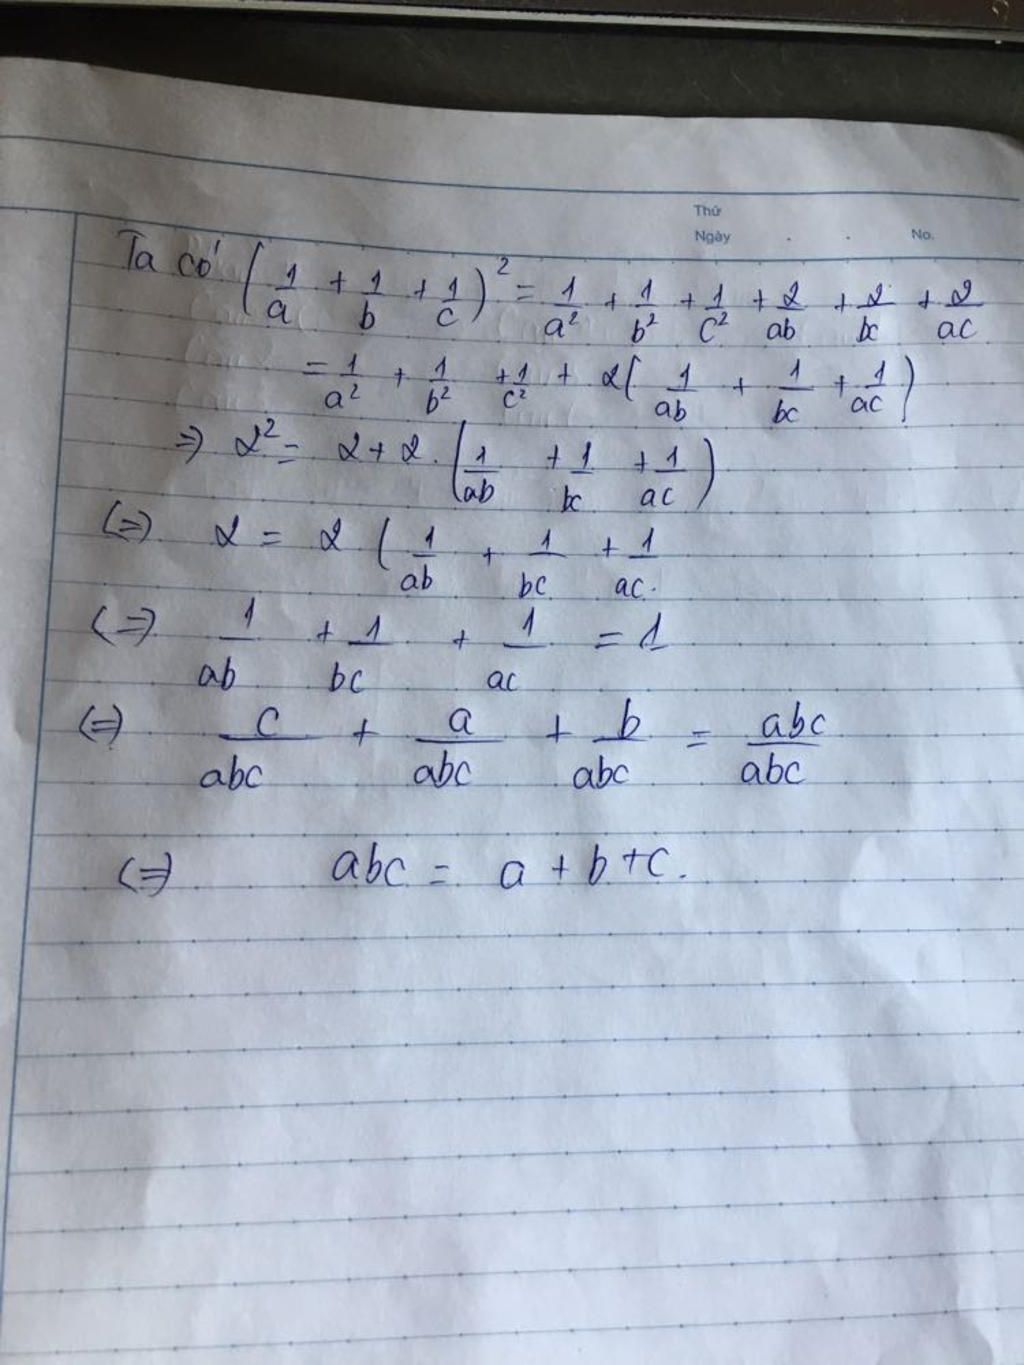 Thứ
Ngày . . No.
Ta có (1/a + 1/b + 1/c)² = 1/a² + 1/b² + 1/c² + 2/ab + 2/bc + 2/ac
= 1/a² + 1/b² + 1/c² + 2(1/ab + 1/bc + 1/ac)
=> 2² = 2 + 2 . (1/ab + 1/bc + 1/ac)
(=) 2 = 2 (1/ab + 1/bc + 1/ac.
(=) 1/ab + 1/bc + 1/ac = 1
(=) c/abc + a/abc + b/abc = abc/abc
(=) abc = a + b + c.